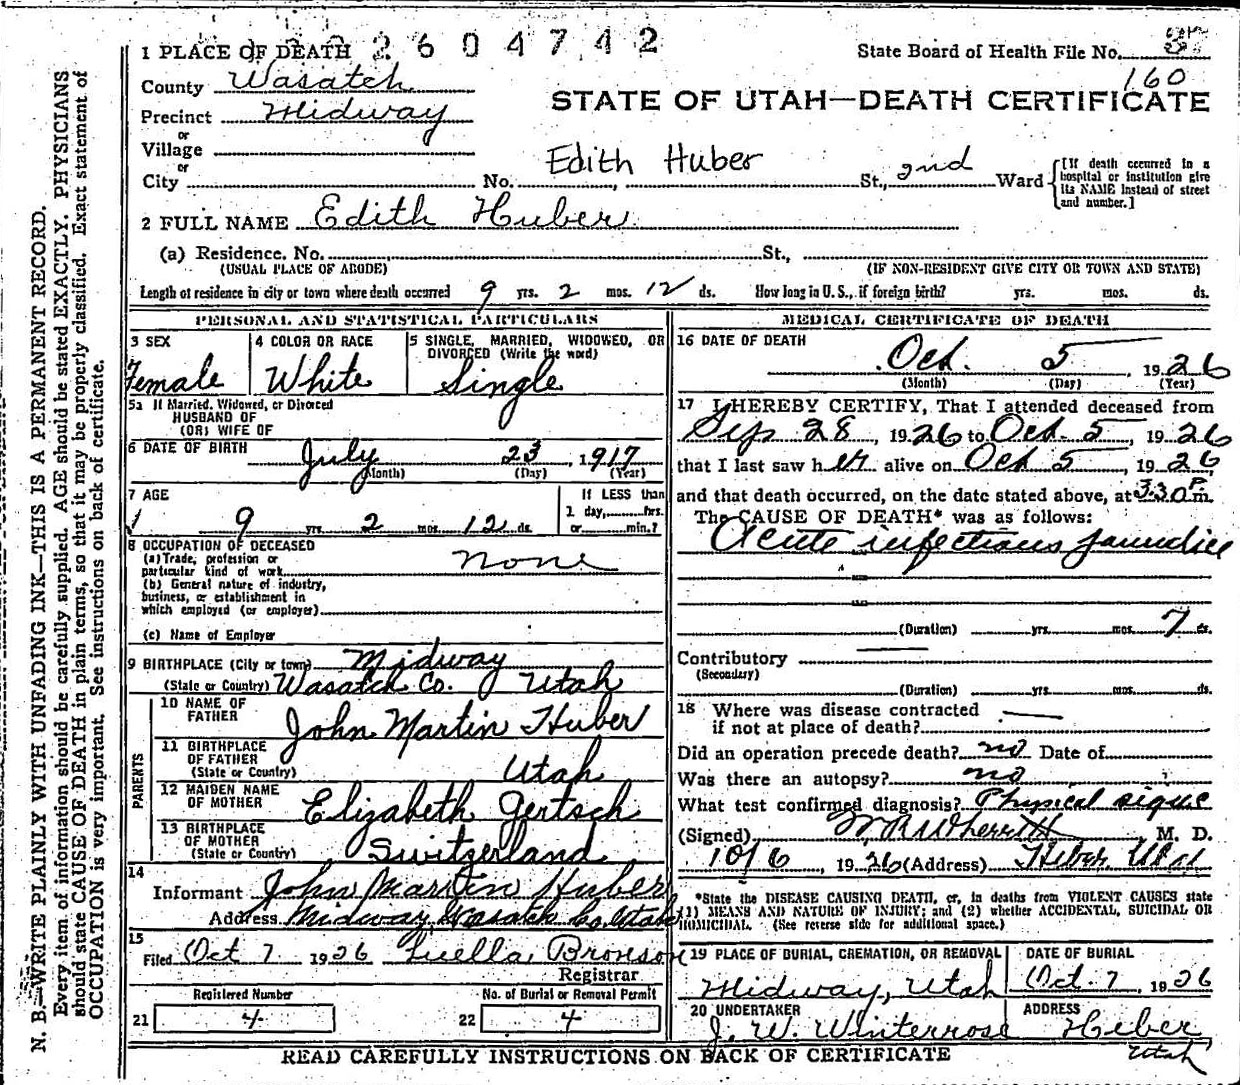 2604742
1 PLACE OF DEATH
State Board of Health File No.
160
County Wasatch
STATE OF UTAH—DEATH CERTIFICATE
Precinct Midway
or
Village
or
Edith Huber
City No. St., 2nd Ward
[If death occurred in a hospital or institution give its NAME instead of street and number.]
2 FULL NAME Edith Huber
(a) Residence. No. St.,
(USUAL PLACE OF ABODE) (IF NON-RESIDENT GIVE CITY OR TOWN AND STATE)
Length of residence in city or town where death occurred 9 yrs. 2 mos. 12 ds. How long in U. S., if foreign birth? yrs. mos. ds.
PERSONAL AND STATISTICAL PARTICULARS
3 SEX
Female
4 COLOR OR RACE
White
5 SINGLE, MARRIED, WIDOWED, OR
DIVORCED (Write the word)
Single
5a If Married, Widowed, or Divorced
HUSBAND OF
(OR) WIFE OF
6 DATE OF BIRTH July 23, 1917
(Month) (Day) (Year)
7 AGE
9 yrs. 2 mos. 12 ds.
If LESS than
1 day, hrs.
or min.?
8 OCCUPATION OF DECEASED
(a) Trade, profession or
particular kind of work none
(b) General nature of industry,
business, or establishment in
which employed (or employer)
(c) Name of Employer
9 BIRTHPLACE (City or town) Midway
(State or Country) Wasatch Co. Utah
PARENTS
10 NAME OF
FATHER John Martin Huber
11 BIRTHPLACE
OF FATHER
(State or Country) Utah
12 MAIDEN NAME
OF MOTHER Elizabeth Gertsch
13 BIRTHPLACE
OF MOTHER
(State or Country) Switzerland
14
Informant John Martin Huber
Address Midway, Wasatch Co. Utah
15
Filed Oct 7 1926 Luella Bronson
Registrar
Registered Number
21 4
No. of Burial or Removal Permit
22 4
MEDICAL CERTIFICATE OF DEATH
16 DATE OF DEATH
Oct. 5 1926
(Month) (Day) (Year)
17 I HEREBY CERTIFY, That I attended deceased from
Sep 28, 1926 to Oct. 5, 1926
that I last saw her alive on Oct 5, 1926
and that death occurred, on the date stated above, at 3:30 P.m.
The CAUSE OF DEATH* was as follows:
Acute infectious jaundice
(Duration) yrs. mos. 7 ds.
Contributory
(Secondary)
(Duration) yrs. mos. ds.
18 Where was disease contracted
if not at place of death?
Did an operation precede death? no Date of
Was there an autopsy? no
What test confirmed diagnosis? Physical signs
(Signed) W R Wherritt M. D.
10/6, 1926 (Address) Heber Utah
*State the DISEASE CAUSING DEATH, or, in deaths from VIOLENT CAUSES state
(1) MEANS AND NATURE OF INJURY; and (2) whether ACCIDENTAL, SUICIDAL OR
HOMICIDAL. (See reverse side for additional space.)
19 PLACE OF BURIAL, CREMATION, OR REMOVAL
Midway, Utah
DATE OF BURIAL
Oct. 7, 1926
20 UNDERTAKER
J. W. Winterrose
ADDRESS
Heber
Utah
READ CAREFULLY INSTRUCTIONS ON BACK OF CERTIFICATE
N. B.—WRITE PLAINLY WITH UNFADING INK—THIS IS A PERMANENT RECORD.
Every item of information should be carefully supplied. AGE should be stated EXACTLY. PHYSICIANS
should state CAUSE OF DEATH in plain terms, so that it may be properly classified. Exact statement of
OCCUPATION is very important. See instructions on back of certificate.